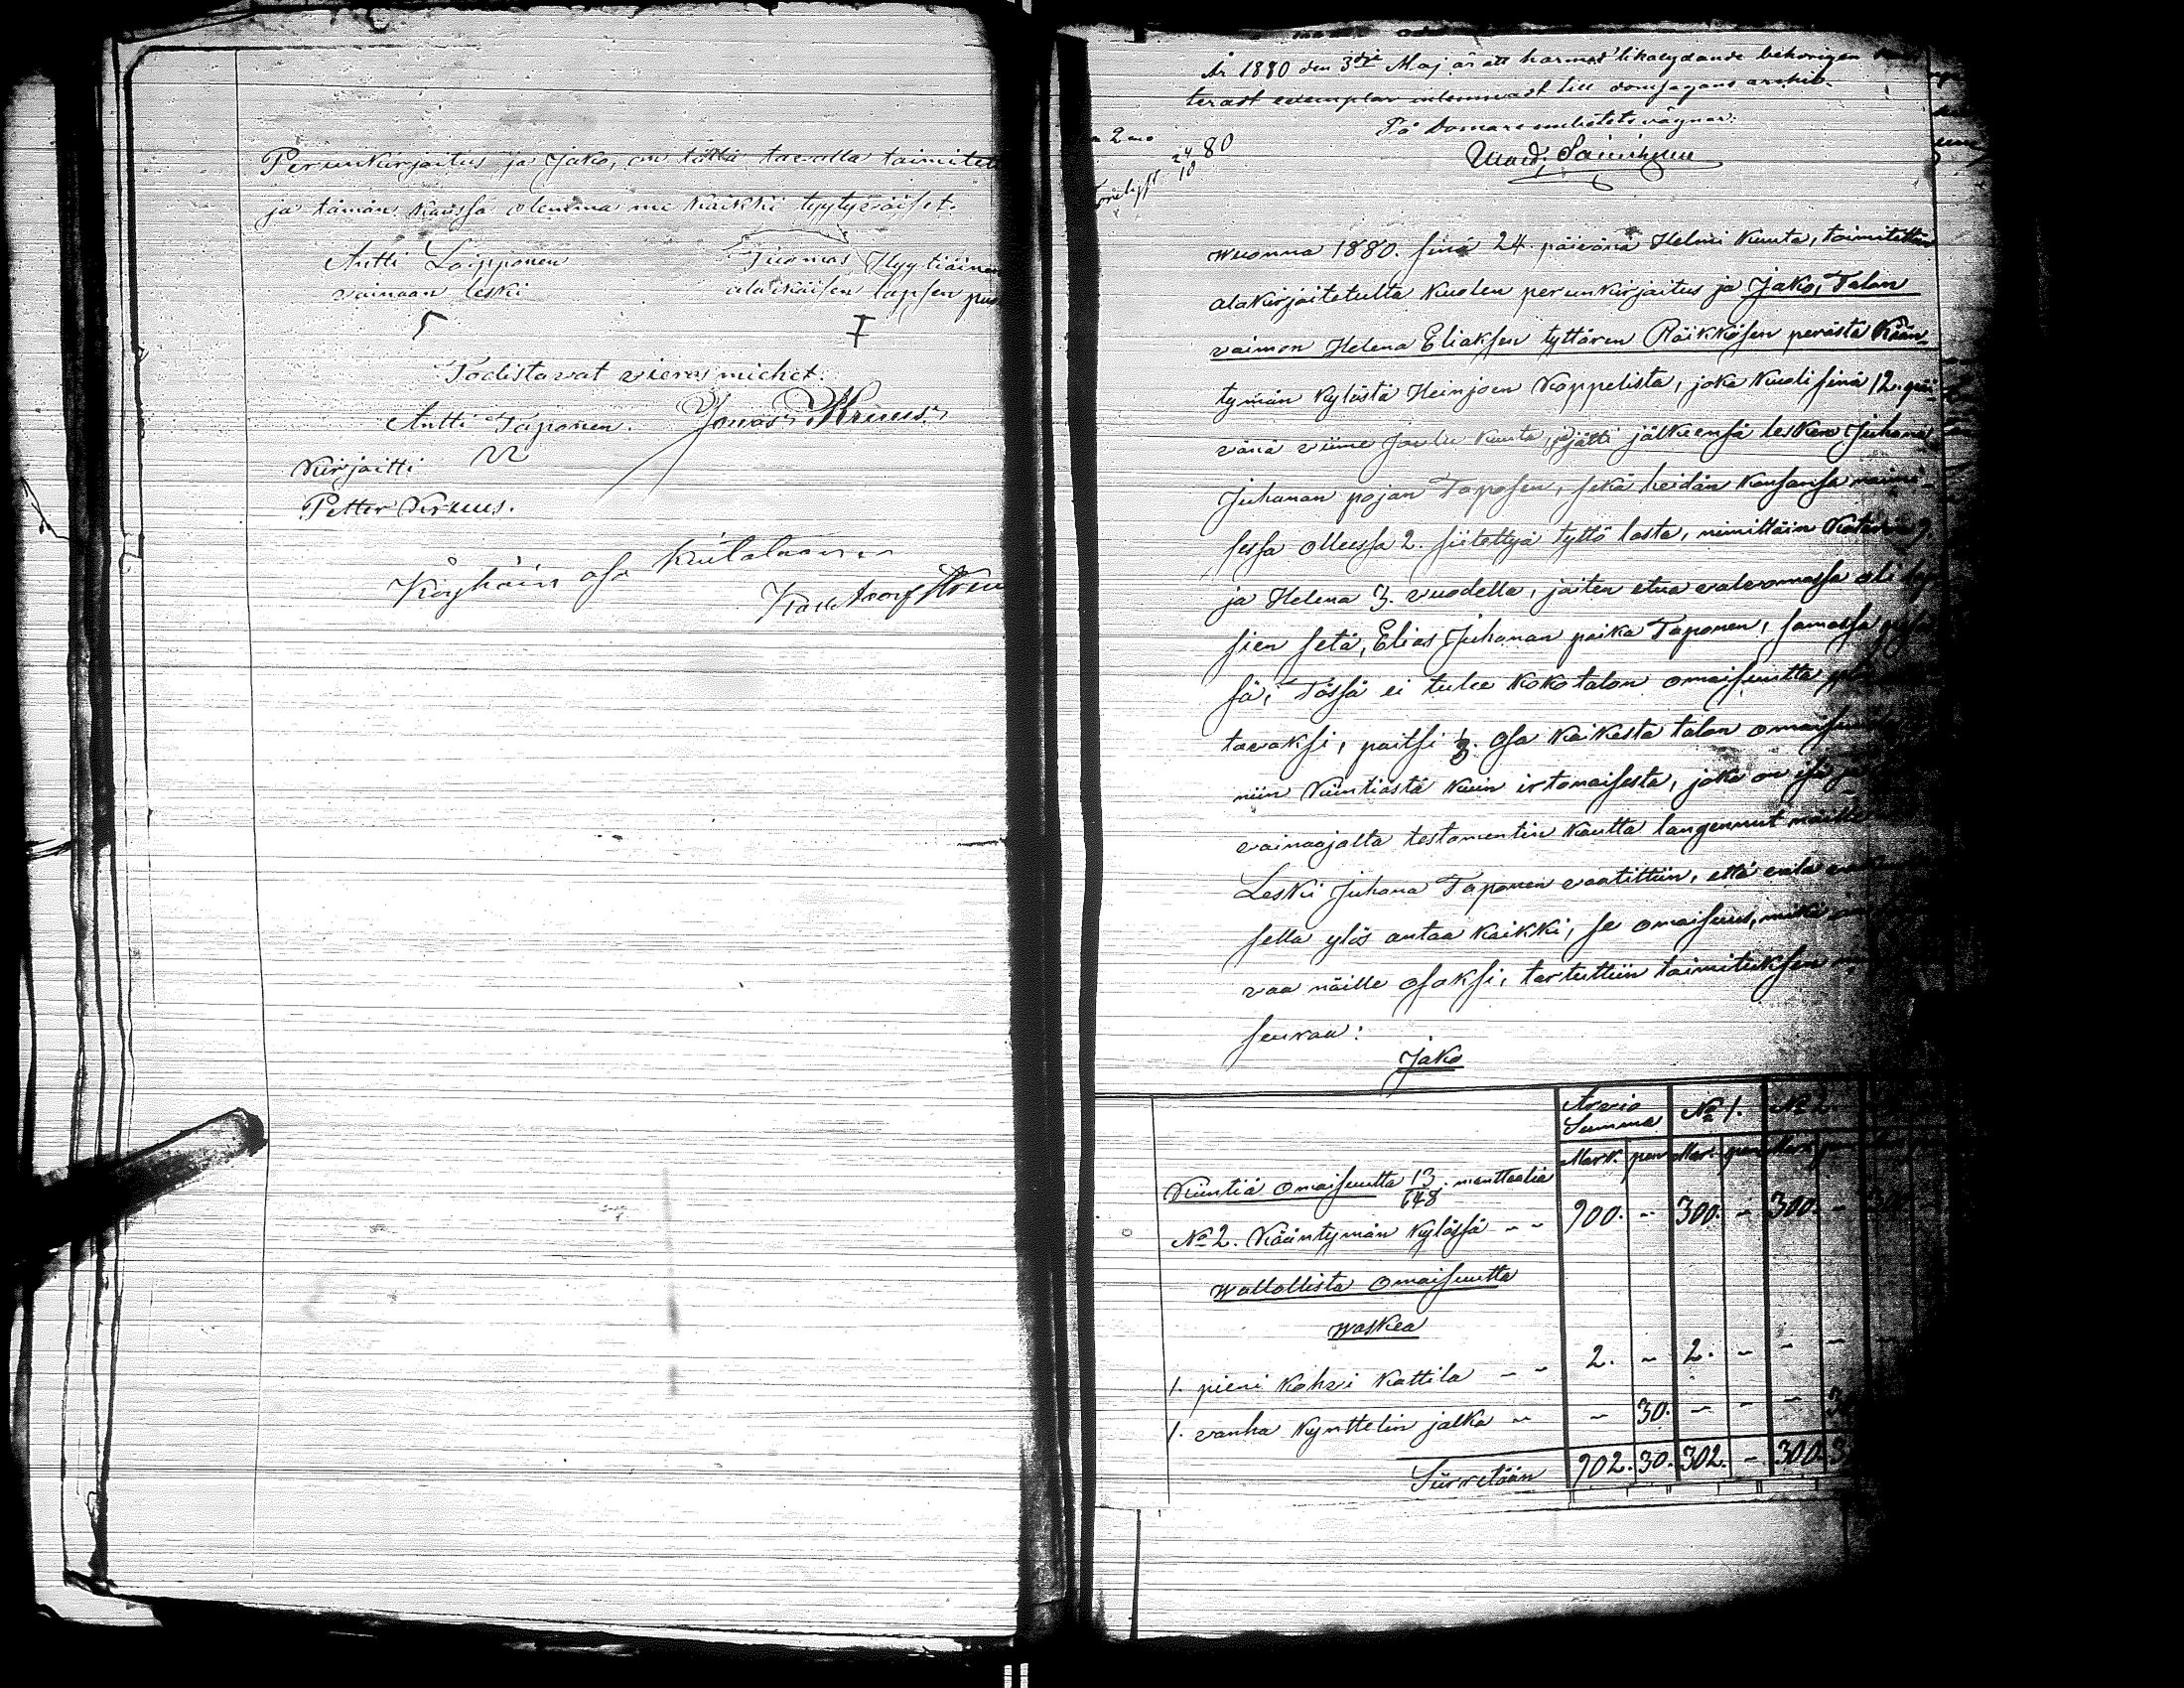 Perunkirjoitus ja Jako, on tällä tavalla toimitet
ja tämän kanssa olemma me kaikki tyytyväiset.
Antti Loipponen
vainaan leski
Tuomas Hyytiäinen
alaikäisen lapsen puo
Todistavat vieras miehet.
Antti Taponen. Jonas Kruus
Kirjoitti
Petter Kruus.
Köyhäin osa kuitataan
År 1880 den 3dje Maj är ett härmed likalydande behörigen
teradt exemplar inlemnadt till domsagans arkiv.
På Domareembetets vägnar:
2
24 80
10
wuonna 1880. sinä 24. päivänä Helmi kuuta, toimitettiin
alakirjoitetulta kuolen perunkirjoitus ja Jako, Talon
vaimon Helena Eliaksen tyttären Räikkösen perästä Kään-
tymän kylästä Heinjoen Kappelista, joka kuoli sinä 12. päi-
vänä viime joulu kuuta, ja jätti jälkeensä lesken Juhana
Juhanan pojan Taposen, sekä heidän kanssansa naimi-
sessa ollessa 2. siitettyä tyttö lasta, nimittäin Katarina 9.
ja Helena 3. vuodella, joiten etua valvomassa oli lap-
sien setä, Elias Juhanan poika Taponen, samassa
sä; Tässä ei tulee koko talon omaisuutta
tavaksi, paitsi 1/3. Osa kaikesta talon omaisuu
niin kiintiästä kuin irtonaisesta, joka on isä
vainaajalta testamentin kautta langennut näille
Leski Juhana Taponen vaatittiin, että vala
sella ylös antaa kaikki, se omaisuus, mikä
vaa näille osaksi; tartuttiin toimituksen
seuraa:
Jako
Arvio Summa № 1. № 2.
Mark. pen Mar. pen Mar. p
Kiintiä omaisuutta 13/648 manttaalia
№ 2. Kääntymän kylässä - - 900. - 300. - 300. -
Wallallista omaisuutta
Waskea
1. pieni kahvi kattila - - 2. - 2. - - -
1. vanha kynttelin jalka - - 30. - - - 30
Siirretään 902. 30. 302. - 300. 30